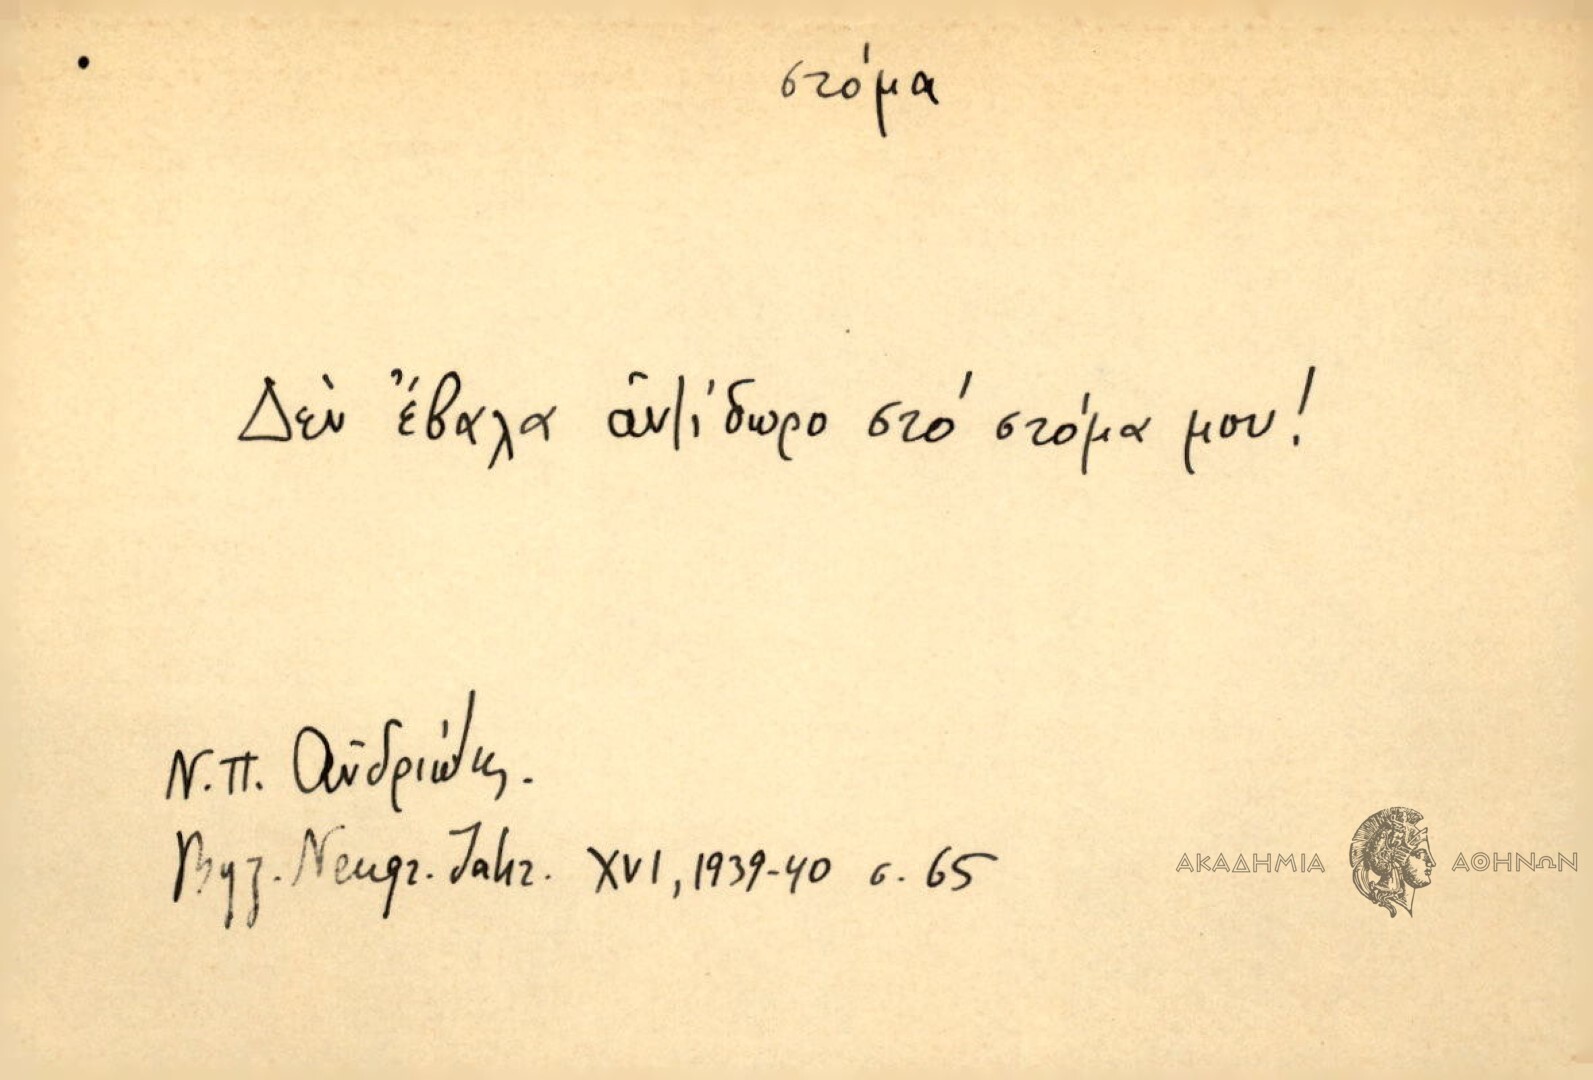 στόμα
Δὲν ἔβαλα ἀντίδωρο στό στόμα μου!
Ν.Π. Ἀνδριώτης.
Byz. Neugr. Jahr. XVI, 1939-40 σ. 65
ΑΚΑΔΗΜΙΑ ΑΘΗΝΩΝ